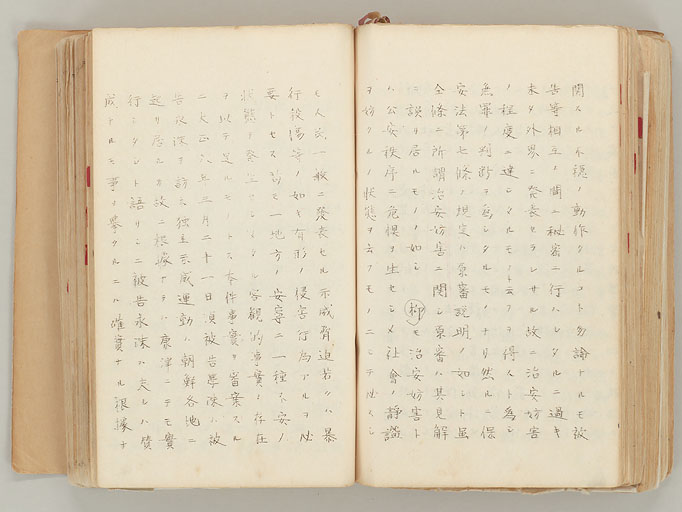 関スル不穏ノ動作タルコト勿論ナルモ被
告等相互ノ間ニ秘密ニ行ハレタルニ過キ
未タ外界ニ発表セラレサル故ニ治安妨害
ノ程度ニ達シタルモノト云フヲ得スト為シ
無罪ノ判断ヲ為シタルモノナリ然ルニ保
安法第七條ノ規定ハ原審説明ノ如シト雖
全條ニ所謂治安妨害ニ関シ原審ハ其見解
ニ誤リ居ルモノヽ如シ 抑モ治安妨害ト
ハ公安秩序ニ危惧ヲ生セシメ社会ノ静謐
ヲ妨クルノ状態ヲ云フモノニシテ必スシ
モ人民一般ニ発表セル示威脅迫若クハ暴
行後湯等ノ如キ有形ノ侵害行為アルヲ必
要トセス苟モ一地方ノ安寧ニ一種不安ノ
状態ヲ発生セシメタル客観的事実ノ存在
ヲ以テ足ルモノトス本件事実ヲ審案スル
ニ大正八年三月二十一日頃被告學陳ハ被
告永深ヲ訪ヒ独立示威運動ハ朝鮮各地ニ
起リ居ル故ニ根據ナラハ唐津ニテモ實
行シタシト語リシニ被告永深ハ夫レハ賛
成ナルモ事ヲ挙クルニハ確實ナル根據ナ